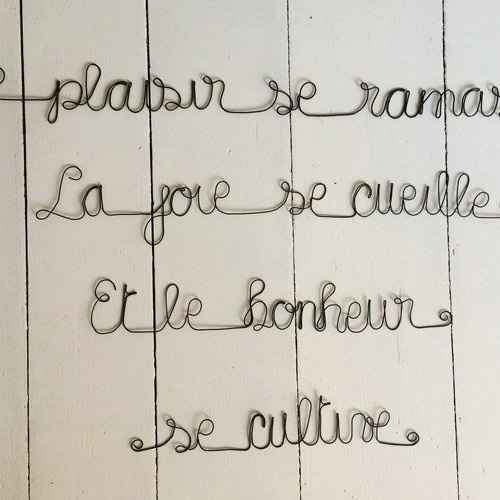 plaisir se ramas
La joie se cueille
Et le bonheur
se cultive